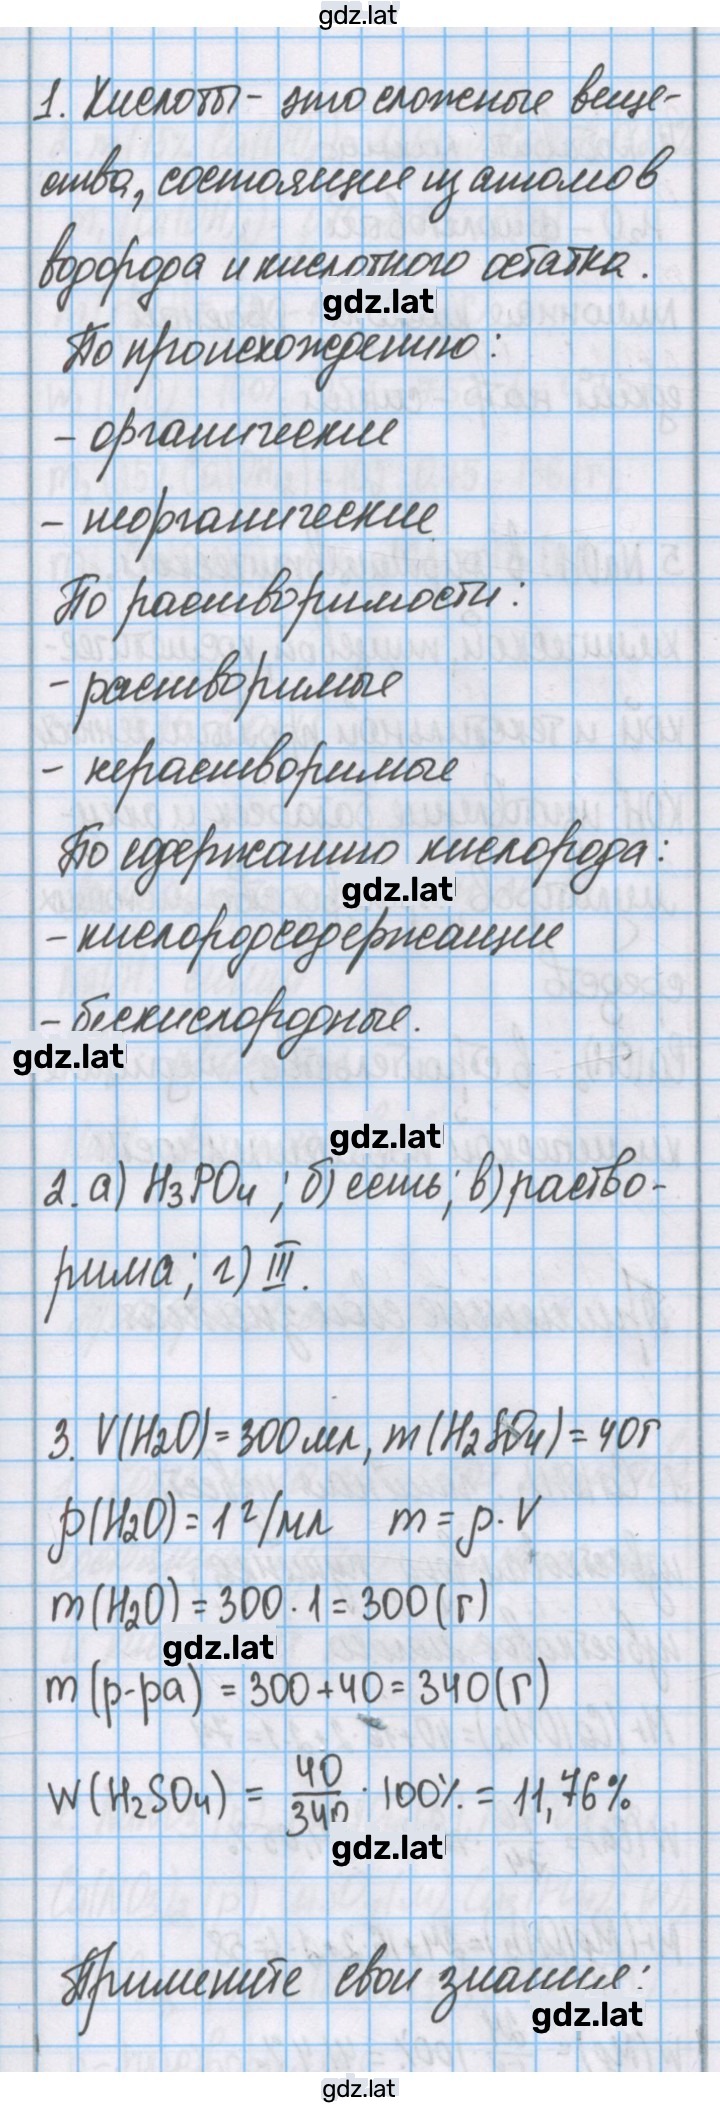 gdz.lat
1. Кислоты - это сложные веще-
ства, состоящие из атомов
водорода и кислотного остатка.
gdz.lat
По происхождению:
- органические
- неорганические
По растворимости:
- растворимые
- нерастворимые
По содержанию кислорода:
gdz.lat
- кислородсодержащие
- бескислородные.
gdz.lat
gdz.lat
2. а) H₃PO₄; б) есть; в) раство-
рима; г) III.
3. V(H₂O) = 300 мл, m(H₂SO₄) = 40г
ρ(H₂O) = 1 г/мл m = ρ · V
m(H₂O) = 300 · 1 = 300 (г)
gdz.lat
m (р-ра) = 300 + 40 = 340 (г)
W(H₂SO₄) = 40/340 · 100% = 11,76%
gdz.lat
Примените свои знания:
gdz.lat
gdz.lat